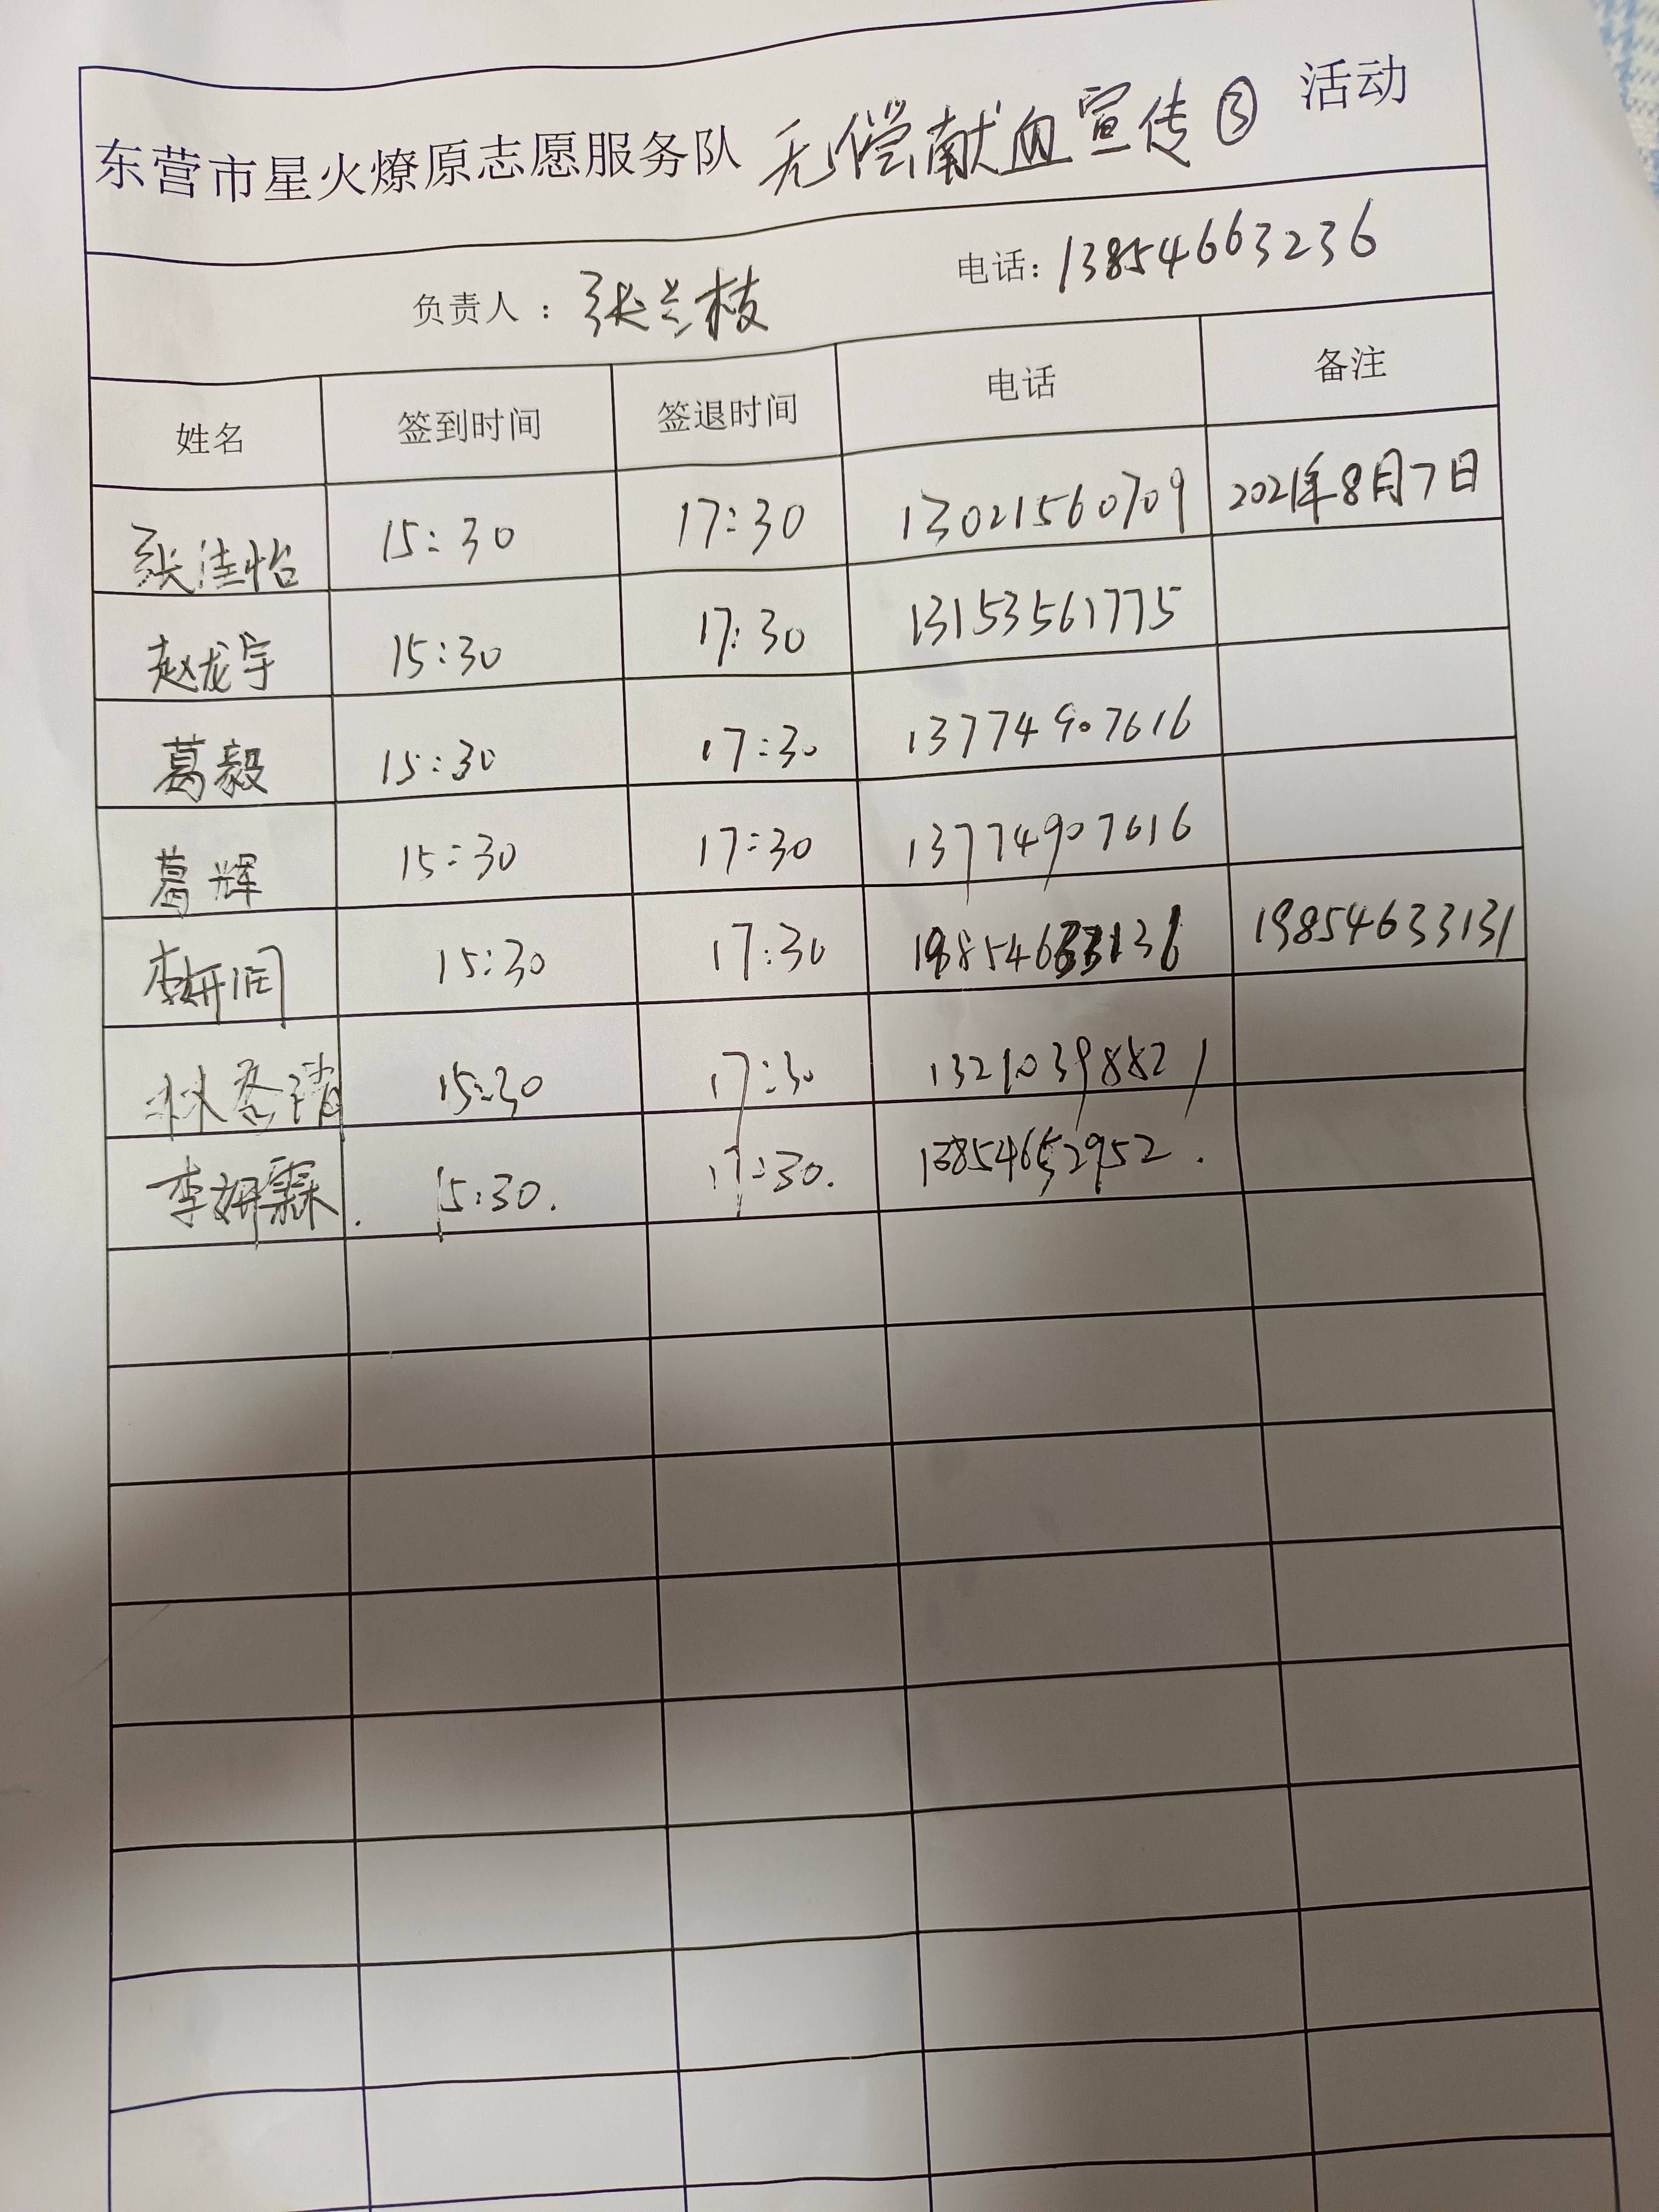 东营市星火燎原志愿服务队 无偿献血宣传③ 活动
负责人：张兰枝 电话：13854663236
姓名 签到时间 签退时间 电话 备注
张佳怡 15:30 17:30 13021560709 2021年8月7日
赵龙宇 15:30 17:30 13153561775
葛毅 15:30 17:30 13774907616
葛辉 15:30 17:30 13774907616
李妍润 15:30 17:30 19854633131
林 15:30 17:30 13210398821
李妍霖. 15:30. 17:30. 13854652952.